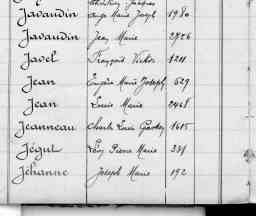 Javaudin Ange Marie Joseph 1980
Javaudin Jean Marie 2726
Javel François Victor 1211
Jean Eugène Marie Joseph 629
Jean Louis Marie 2468
Jeanneau Charles Louis 1615
Jégut Léon Pierre Marie 231
Jéhanne Joseph Marie 192